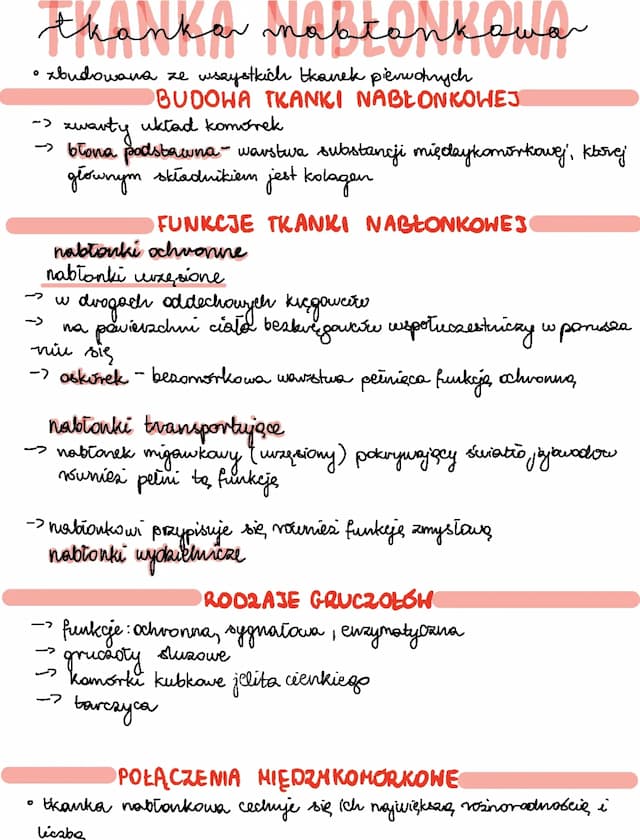 TKANKA NABŁONKOWA
tkanka nabłonkowa
• zbudowana ze wszystkich tkanek pierwotnych
BUDOWA TKANKI NABŁONKOWEJ
-> zwarty układ komórek
-> błona podstawna - warstwa substancji międzykomórkowej, której
głównym składnikiem jest kolagen
FUNKCJE TKANKI NABŁONKOWEJ
nabłonki ochronne
nabłonki urzęsione
-> w drogach oddechowych kręgowców
-> na powierzchni ciała bezkręgowców współuczestniczy w porusza
niu się
-> oskórek - bezomórkowa warstwa pełniąca funkcję ochronną
nabłonki transportujące
-> nabłonek migawkowy (urzęsiony) pokrywający światło jajowodów
również pełni tę funkcję
-> nabłonkowi przypisuje się również funkcję zmysłową
nabłonki wydzielnicze
RODZAJE GRUCZOŁÓW
-> funkcje: ochronna, sygnałowa, enzymatyczna
-> gruczoły śluzowe
-> komórki kubkowe jelita cienkiego
-> tarczyca
POŁĄCZENIA MIĘDZYKOMÓRKOWE
• tkanka nabłonkowa cechuje się ich największą różnorodnością i
liczbą